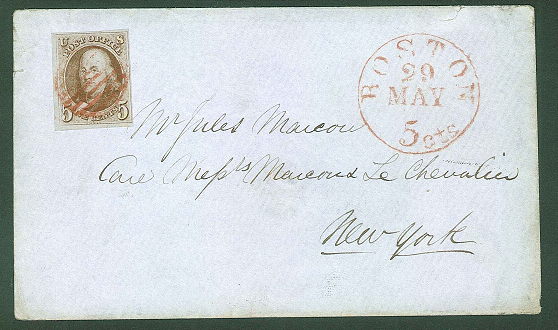 U S
POST OFFICE
FIVE CENTS
5 5
BOSTON
29
MAY
5 cts
Mr Jules Marcou
Care Messrs Marcou & Le Chevalier
New York